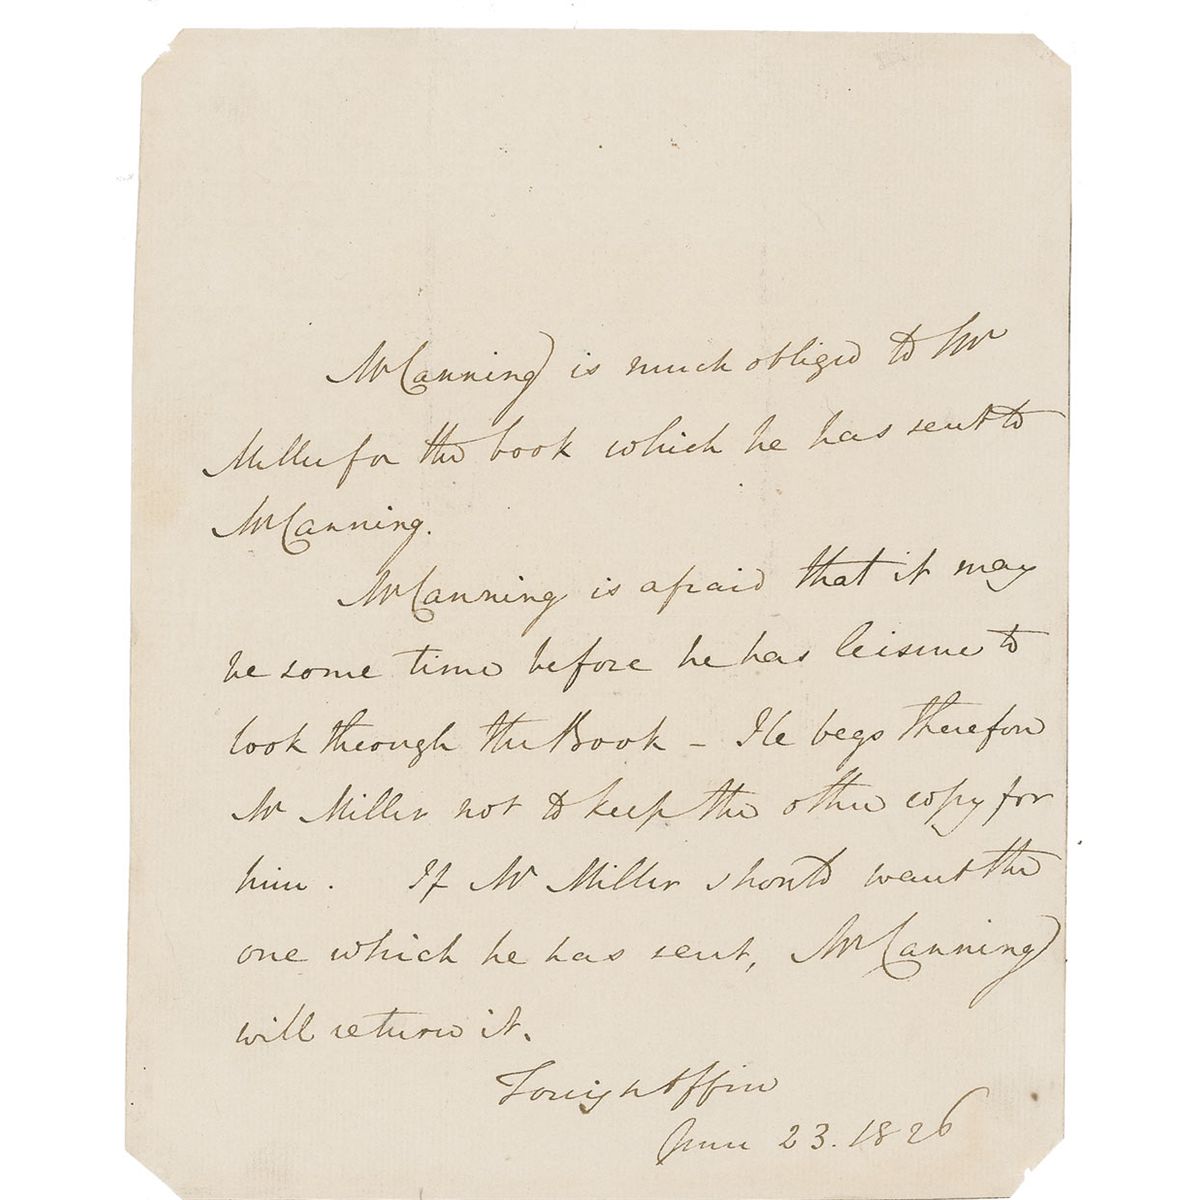 Mr Canning is much obliged to Mr
Miller for the book which he has sent to
Mr Canning.
Mr Canning is afraid that it may
be some time before he has leisure to
look through the Book – He begs therefore
Mr Miller not to keep the other copy for
him. If Mr Miller should want the
one which he has sent, Mr Canning
will return it.
Foreign Office
June 23. 1826